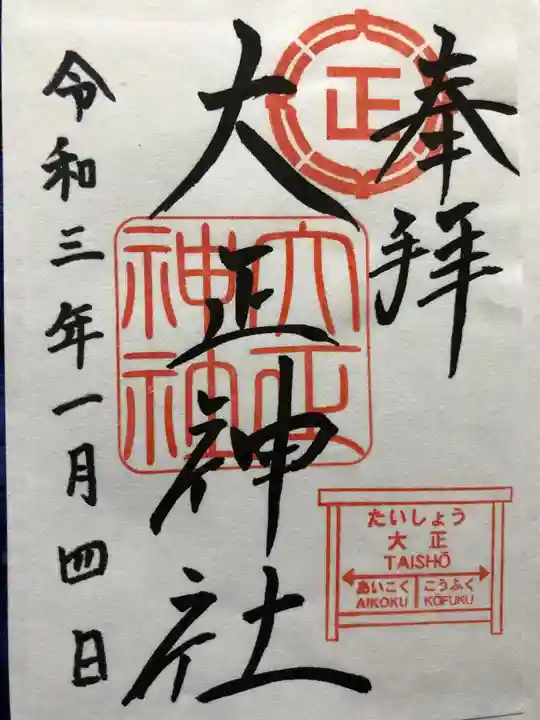 奉拝
正
大正神社
大正神社
令和三年一月四日
たいしょう
大正
TAISHŌ
あいこく こうふく
AIKOKU KŌFUKU